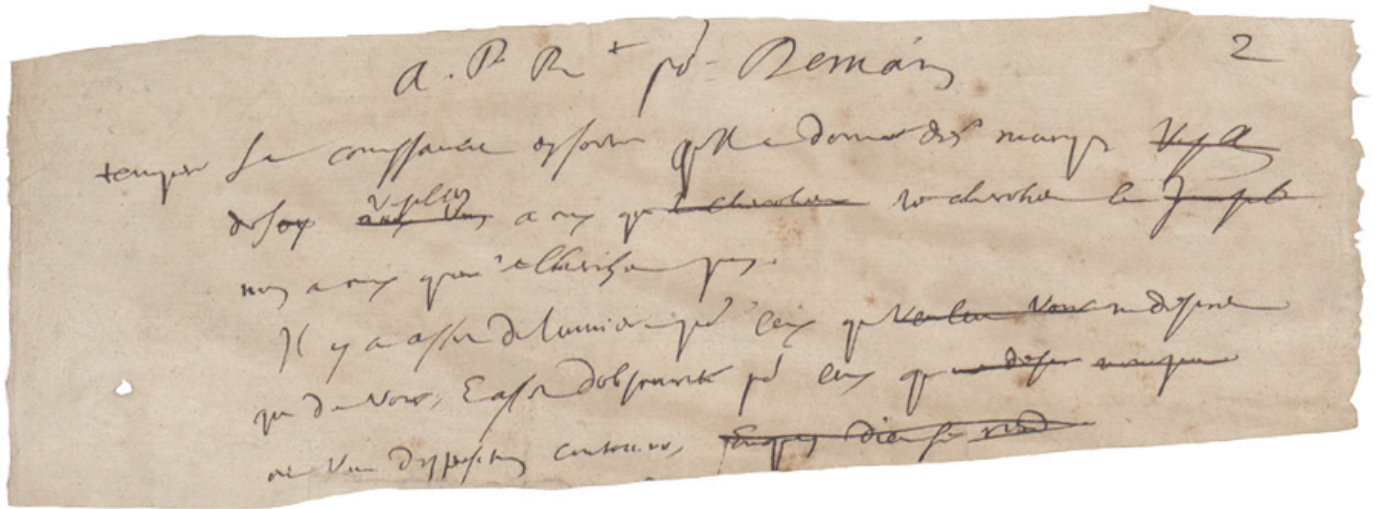 A. P. R. + po^r Demain 2
temperé sa connoissance en sorte qu'il a donné des marques
de soy visibles a ceux qui le cherchent
non a ceux qui ne le cherchent pas.
Il y a assez de lumiere po^r ceux qui ne desirent
que de voir, et assez d'obscurité po^r ceux qui
ont une disposition contraire,